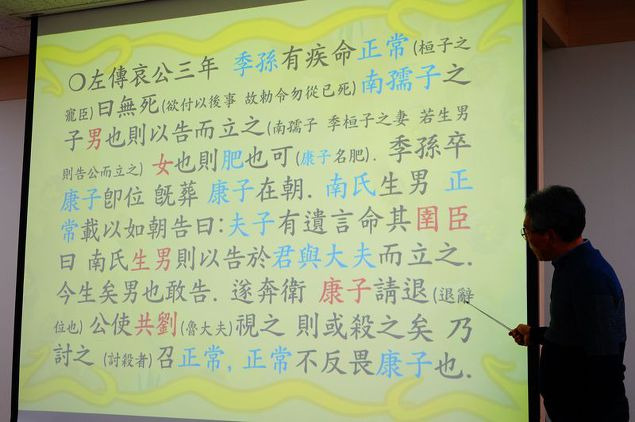 ○左傳哀公三年 季孫有疾命正常(桓子之
寵臣)曰無死(欲付以後事 故勅令勿從已死)南孺子之
子男也則以告而立之(南孺子 季桓子之妻 若生男
則告公而立之) 女也則肥也可(康子名肥). 季孫卒
康子卽位 旣葬 康子在朝. 南氏生男 正
常載以如朝告曰:夫子有遺言命其圉臣
曰 南氏生男則以告於君與大夫而立之.
今生矣男也敢告. 遂奔衛 康子請退(退辭
位也) 公使共劉(魯大夫)視之 則或殺之矣 乃
討之 (討殺者)召正常, 正常不反畏康子也.